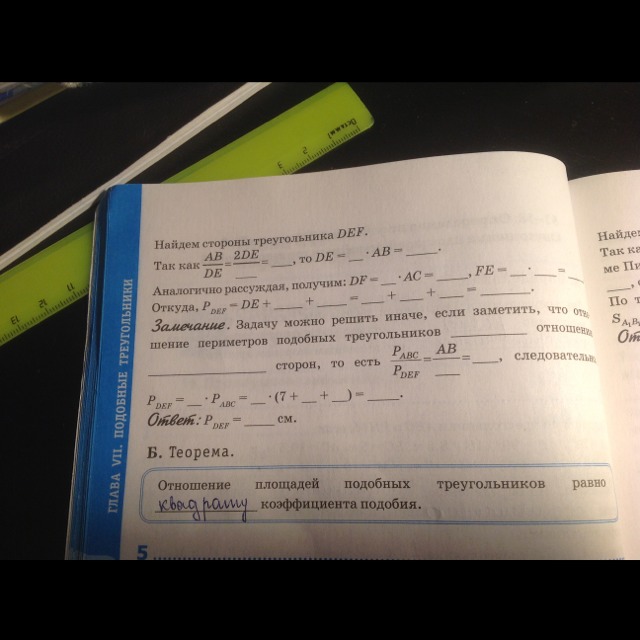 Найдем стороны треугольника DEF.
Так как AB/DE = 2DE/____ = ___, то DE = __ · AB = ____.
Аналогично рассуждая, получим: DF = __ · AC = ____, FE = ___ · ___ =
Откуда, P_DEF = DE + ____ + ____ = ___ + ___ + ___ = ______.
Замечание. Задачу можно решить иначе, если заметить, что отно
шение периметров подобных треугольников ________ отношению
______________ сторон, то есть P_ABC/P_DEF = AB/___ = ___, следовательно
P_DEF = __ · P_ABC = __ · (7 + __ + __) = ____.
Ответ: P_DEF = ____ см.
Б. Теорема.
Отношение площадей подобных треугольников равно
квадрату коэффициента подобия.
5
ГЛАВА VII. ПОДОБНЫЕ ТРЕУГОЛЬНИКИ
Найдем
Так ка
ме Пи
По т
От